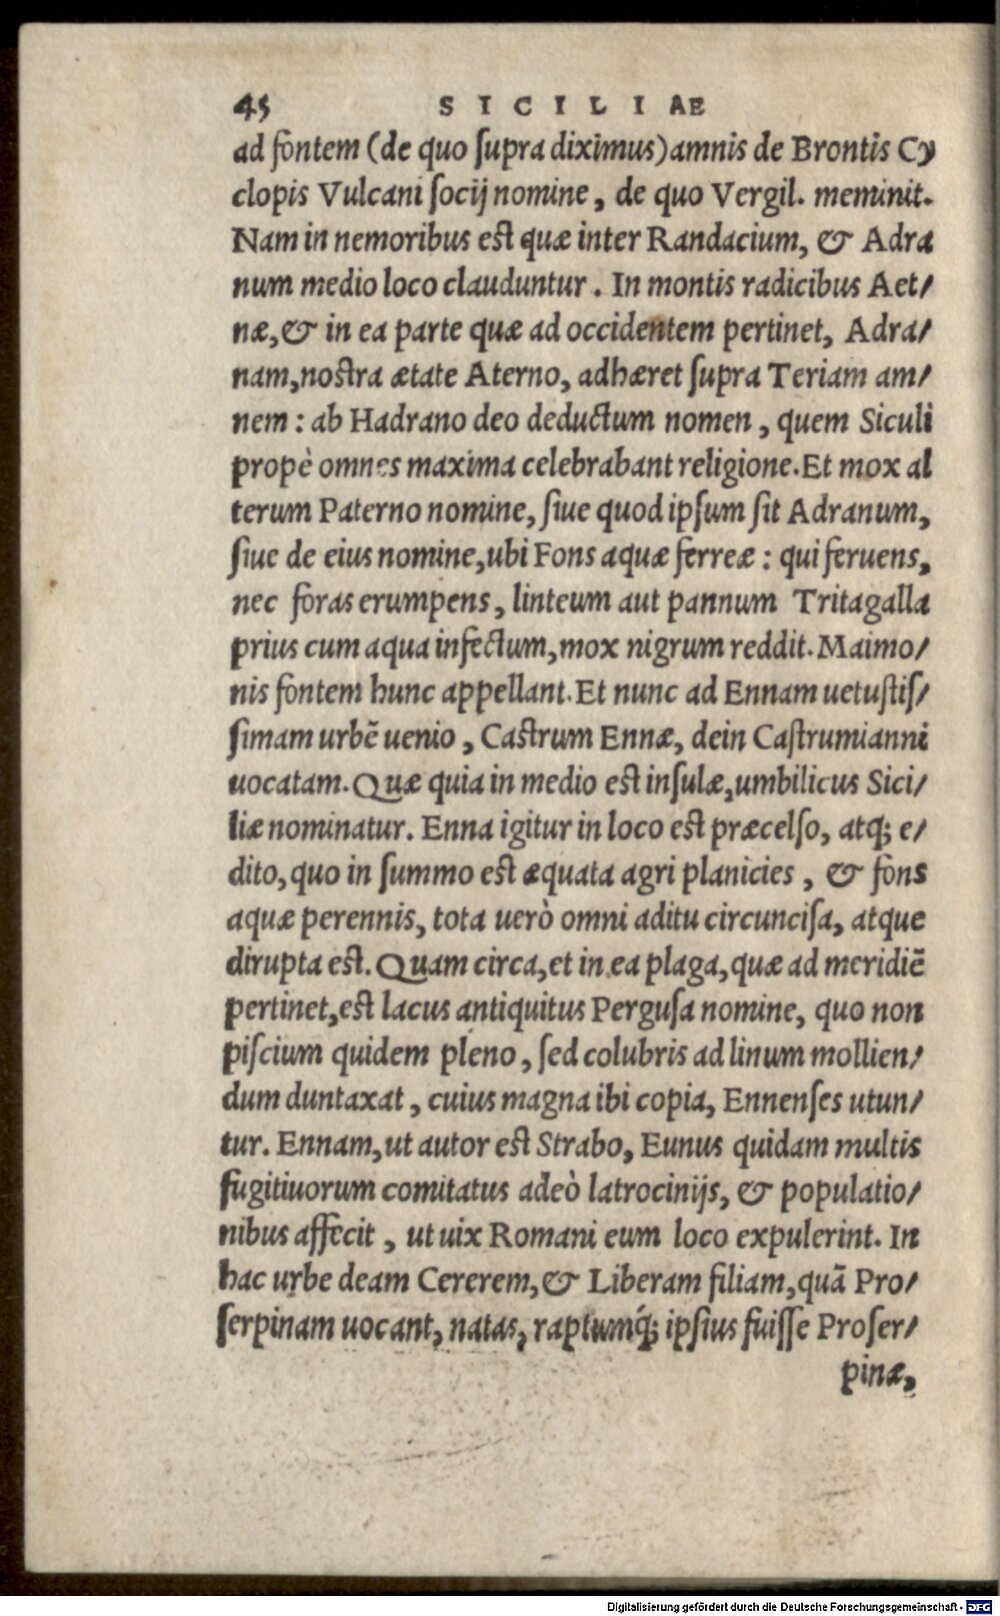 45 SICILIAE
ad fontem (de quo ſupra diximus) amnis de Brontis Cy
clopis Vulcani ſocij nomine, de quo Vergil. meminit.
Nam in nemoribus eſt quæ inter Randacium, & Adra
num medio loco clauduntur. In montis radicibus Aet/
næ, & in ea parte quæ ad occidentem pertinet, Adra/
nam, noſtra ætate Aterno, adhæret ſupra Teriam am/
nem: ab Hadrano deo deductum nomen, quem Siculi
propè omnes maxima celebrabant religione. Et mox al
terum Paterno nomine, ſiue quod ipſum ſit Adranum,
ſiue de eius nomine, ubi Fons aquæ ferreæ: qui feruens,
nec foras erumpens, linteum aut pannum Tritagalla
prius cum aqua infectum, mox nigrum reddit. Maimo/
nis fontem hunc appellant. Et nunc ad Ennam uetuſtiſ/
ſimam urbē uenio, Caſtrum Ennæ, dein Caſtrumianni
uocatam. Quæ quia in medio eſt inſulæ, umbilicus Sici/
liæ nominatur. Enna igitur in loco eſt præcelſo, atq; e/
dito, quo in ſummo eſt æquata agri planicies, & fons
aquæ perennis, tota uerò omni aditu circunciſa, atque
dirupta eſt. Quam circa, et in ea plaga, quæ ad meridiē
pertinet, eſt lacus antiquitus Perguſa nomine, quo non
piſcium quidem pleno, ſed colubris ad linum mollien/
dum duntaxat, cuius magna ibi copia, Ennenſes utun/
tur. Ennam, ut autor eſt Strabo, Eunus quidam multis
fugitiuorum comitatus adeò latrocinijs, & populatio/
nibus affecit, ut uix Romani eum loco expulerint. In
hac urbe deam Cererem, & Liberam filiam, quā Pro/
ſerpinam uocant, natas, raptumq́; ipſius fuiſſe Proſer/
pinæ,
Digitalisierung gefördert durch die Deutsche Forschungsgemeinschaft - DFG